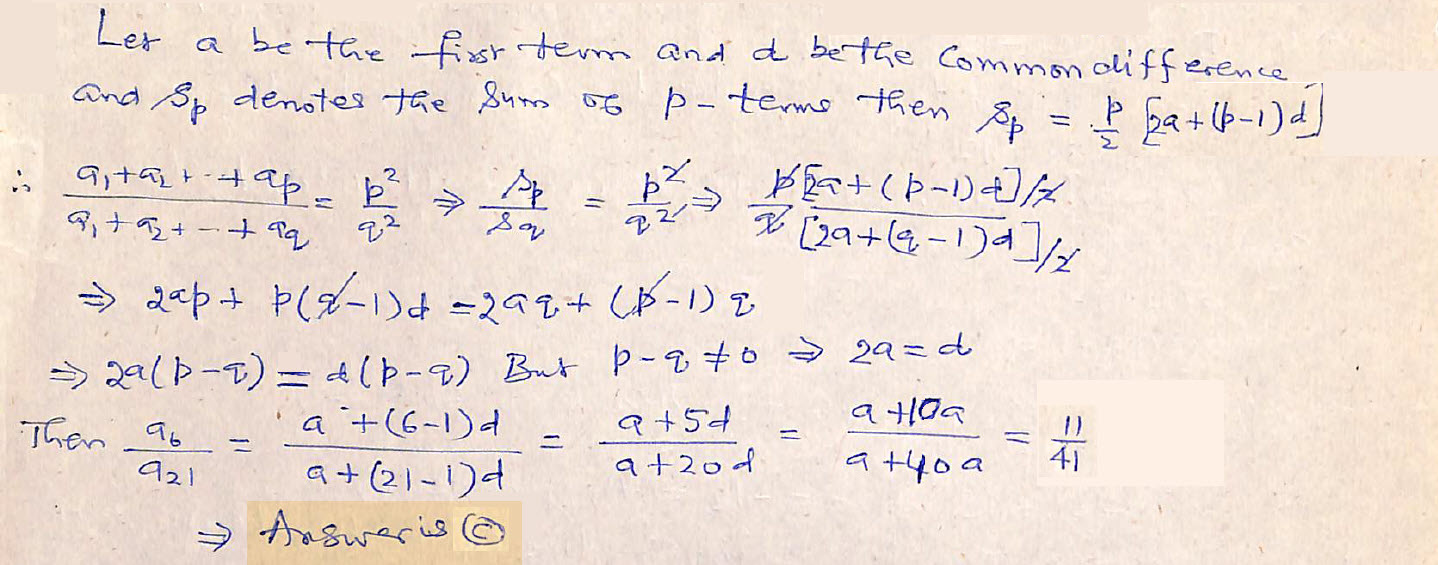 Let a be the first term and d be the Common difference
and Sp denotes the Sum of p-terms then Sp = p/2 [2a+(p-1)d]
∴ (a₁+a₂+--+ap)/(a₁+a₂+--+aq) = p²/q² ⇒ Sp/Sq = p²/q² ⇒ p[2a+(p-1)d]/2 / q[2a+(q-1)d]/2
⇒ 2ap + p(q-1)d = 2aq + (p-1)q
⇒ 2a(p-q) = d(p-q) But p-q ≠ 0 ⇒ 2a = d
Then a₆/a₂₁ = (a+(6-1)d)/(a+(21-1)d) = (a+5d)/(a+20d) = (a+10a)/(a+40a) = 11/41
⇒ Answer is Ⓒ